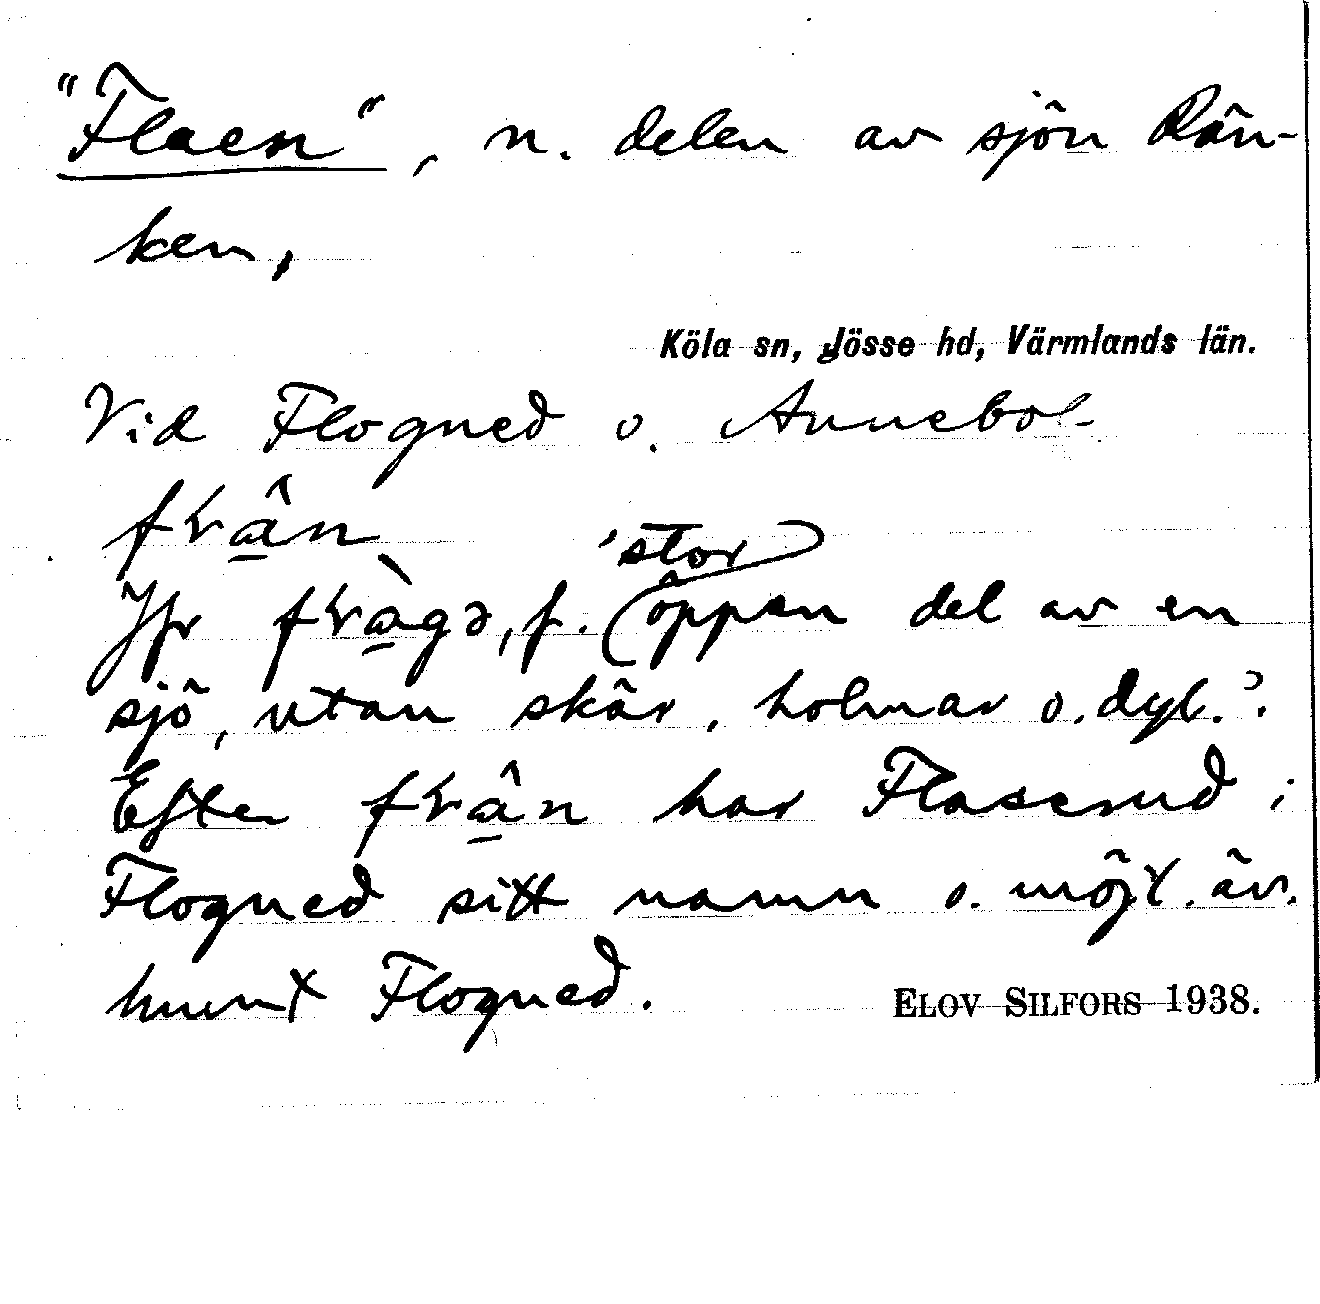 "Flaen", n. delen av sjön Rän-
ken,
Köla sn, Jösse hd, Värmlands län.
Vid Flogned o. Annebol
från
Jfr frågə, f. 'stor (öppen del av en
sjö, utan skär, holmar o. dyl.?
Efter från har Flaserud i
Flogned sitt namn o. möjl. äv.
hunt Flogned.
ELOV SILFORS 1938.